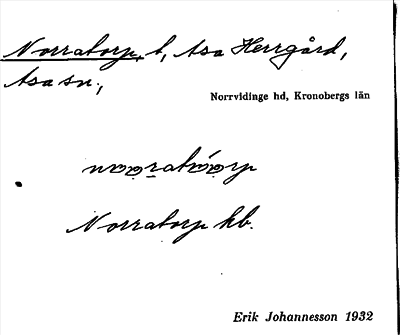 Norratorp, t, Asa Herrgård,
Asa sn.,
Norrvidinge hd, Kronobergs län
Norratorp hb.
Erik Johannesson 1932